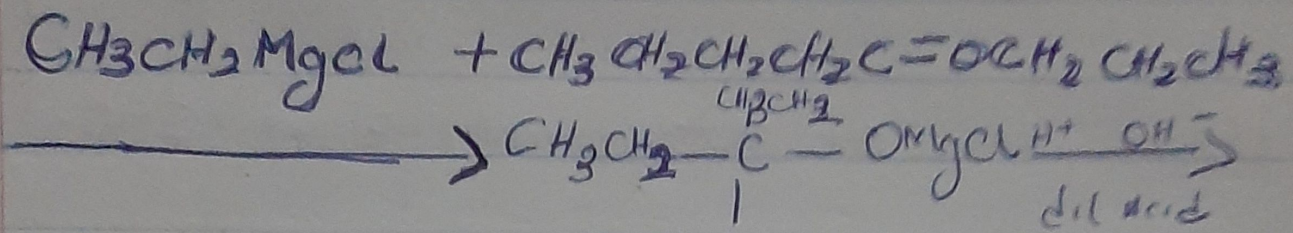 CH3CH2MgCl + CH3CH2CH2CH2C=OCH2CH2CH3
CH3CH2
→ CH3CH2—C—OMgCl H+ OH- →
dil acid